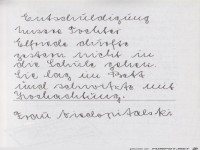 Entschuldigung
Unsere Tochter
Elfriede dürfte
gestern nicht in
die Schule gehen.
Sie lag im Bett
und schwitzte mit
Hochachtung.
Frau